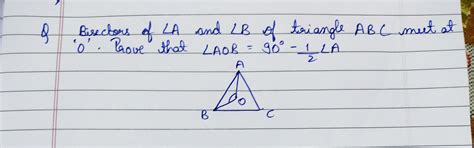 Q Bisectors of ∠A and ∠B of triangle ABC meet at
'O'. Prove that ∠AOB = 90° - 1/2 ∠A
A
O
B C